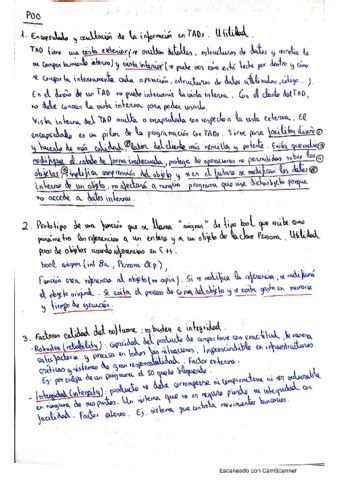 POO
1. Encapsulado y ocultación de la información en TADs. Utilidad.
TAD tiene una vista exterior (se ocultan detalles, estructuras de datos y secretos de
su comportamiento interno) y vista interior (se puede ver cómo está hecho por dentro y cómo
se comporta internamente cada operación, estructuras de datos utilizadas, código...).
En el diseño de un TAD no puede intervenir la vista interna. Con el cliente del TAD,
no debe conocer la vista interna para poder usarlo.
Vista interna del TAD oculta o encapsulada con respecto a la vista externa. El
encapsulado es un pilar de la programación con TADs. Sirve para facilitar diseño
y hacerlo de más calidad labor del cliente más sencilla y potente. Evita que se
modifique el estado de forma inadecuada, protege de operaciones no permitidas sobre los
objetos simplifica comprensión del objeto y si en el futuro se modifican los datos
internos de un objeto, no afectará a ningún programa que use dicho objeto porque
no accede a datos internos.
2. Prototipo de una función que se llama "asignar" de tipo bool que recibe como
parámetro las referencias a un entero y a un objeto de la clase Persona. Utilidad
paso de objetos usando referencias en C++.
bool asignar (int &a, Persona &p);
Función crea referencia al objeto (no copia). Si se modifica la referencia, se modificará
el objeto original. Se evita el proceso de copia del objeto y su gasto en memoria
y tiempo de ejecución.
3. Factores calidad del software: robustez e integridad.
- Robustez (reliability): capacidad del producto de comportarse con exactitud, de manera
satisfactoria y precisa en todas las situaciones. Imprescindible en infraestructuras
críticas y sistemas de gran responsabilidad. Factor externo.
Ej: por culpa de un programa el SO quede bloqueado.
- Integridad (integrity): producto no debe corromperse ni comprometerse ni ser vulnerable
en ninguna de sus partes. Un sistema que no es seguro pierde su integridad con
facilidad. Factor externo. Ej. sistema que controla movimientos bancarios.
Escaneado con CamScanner